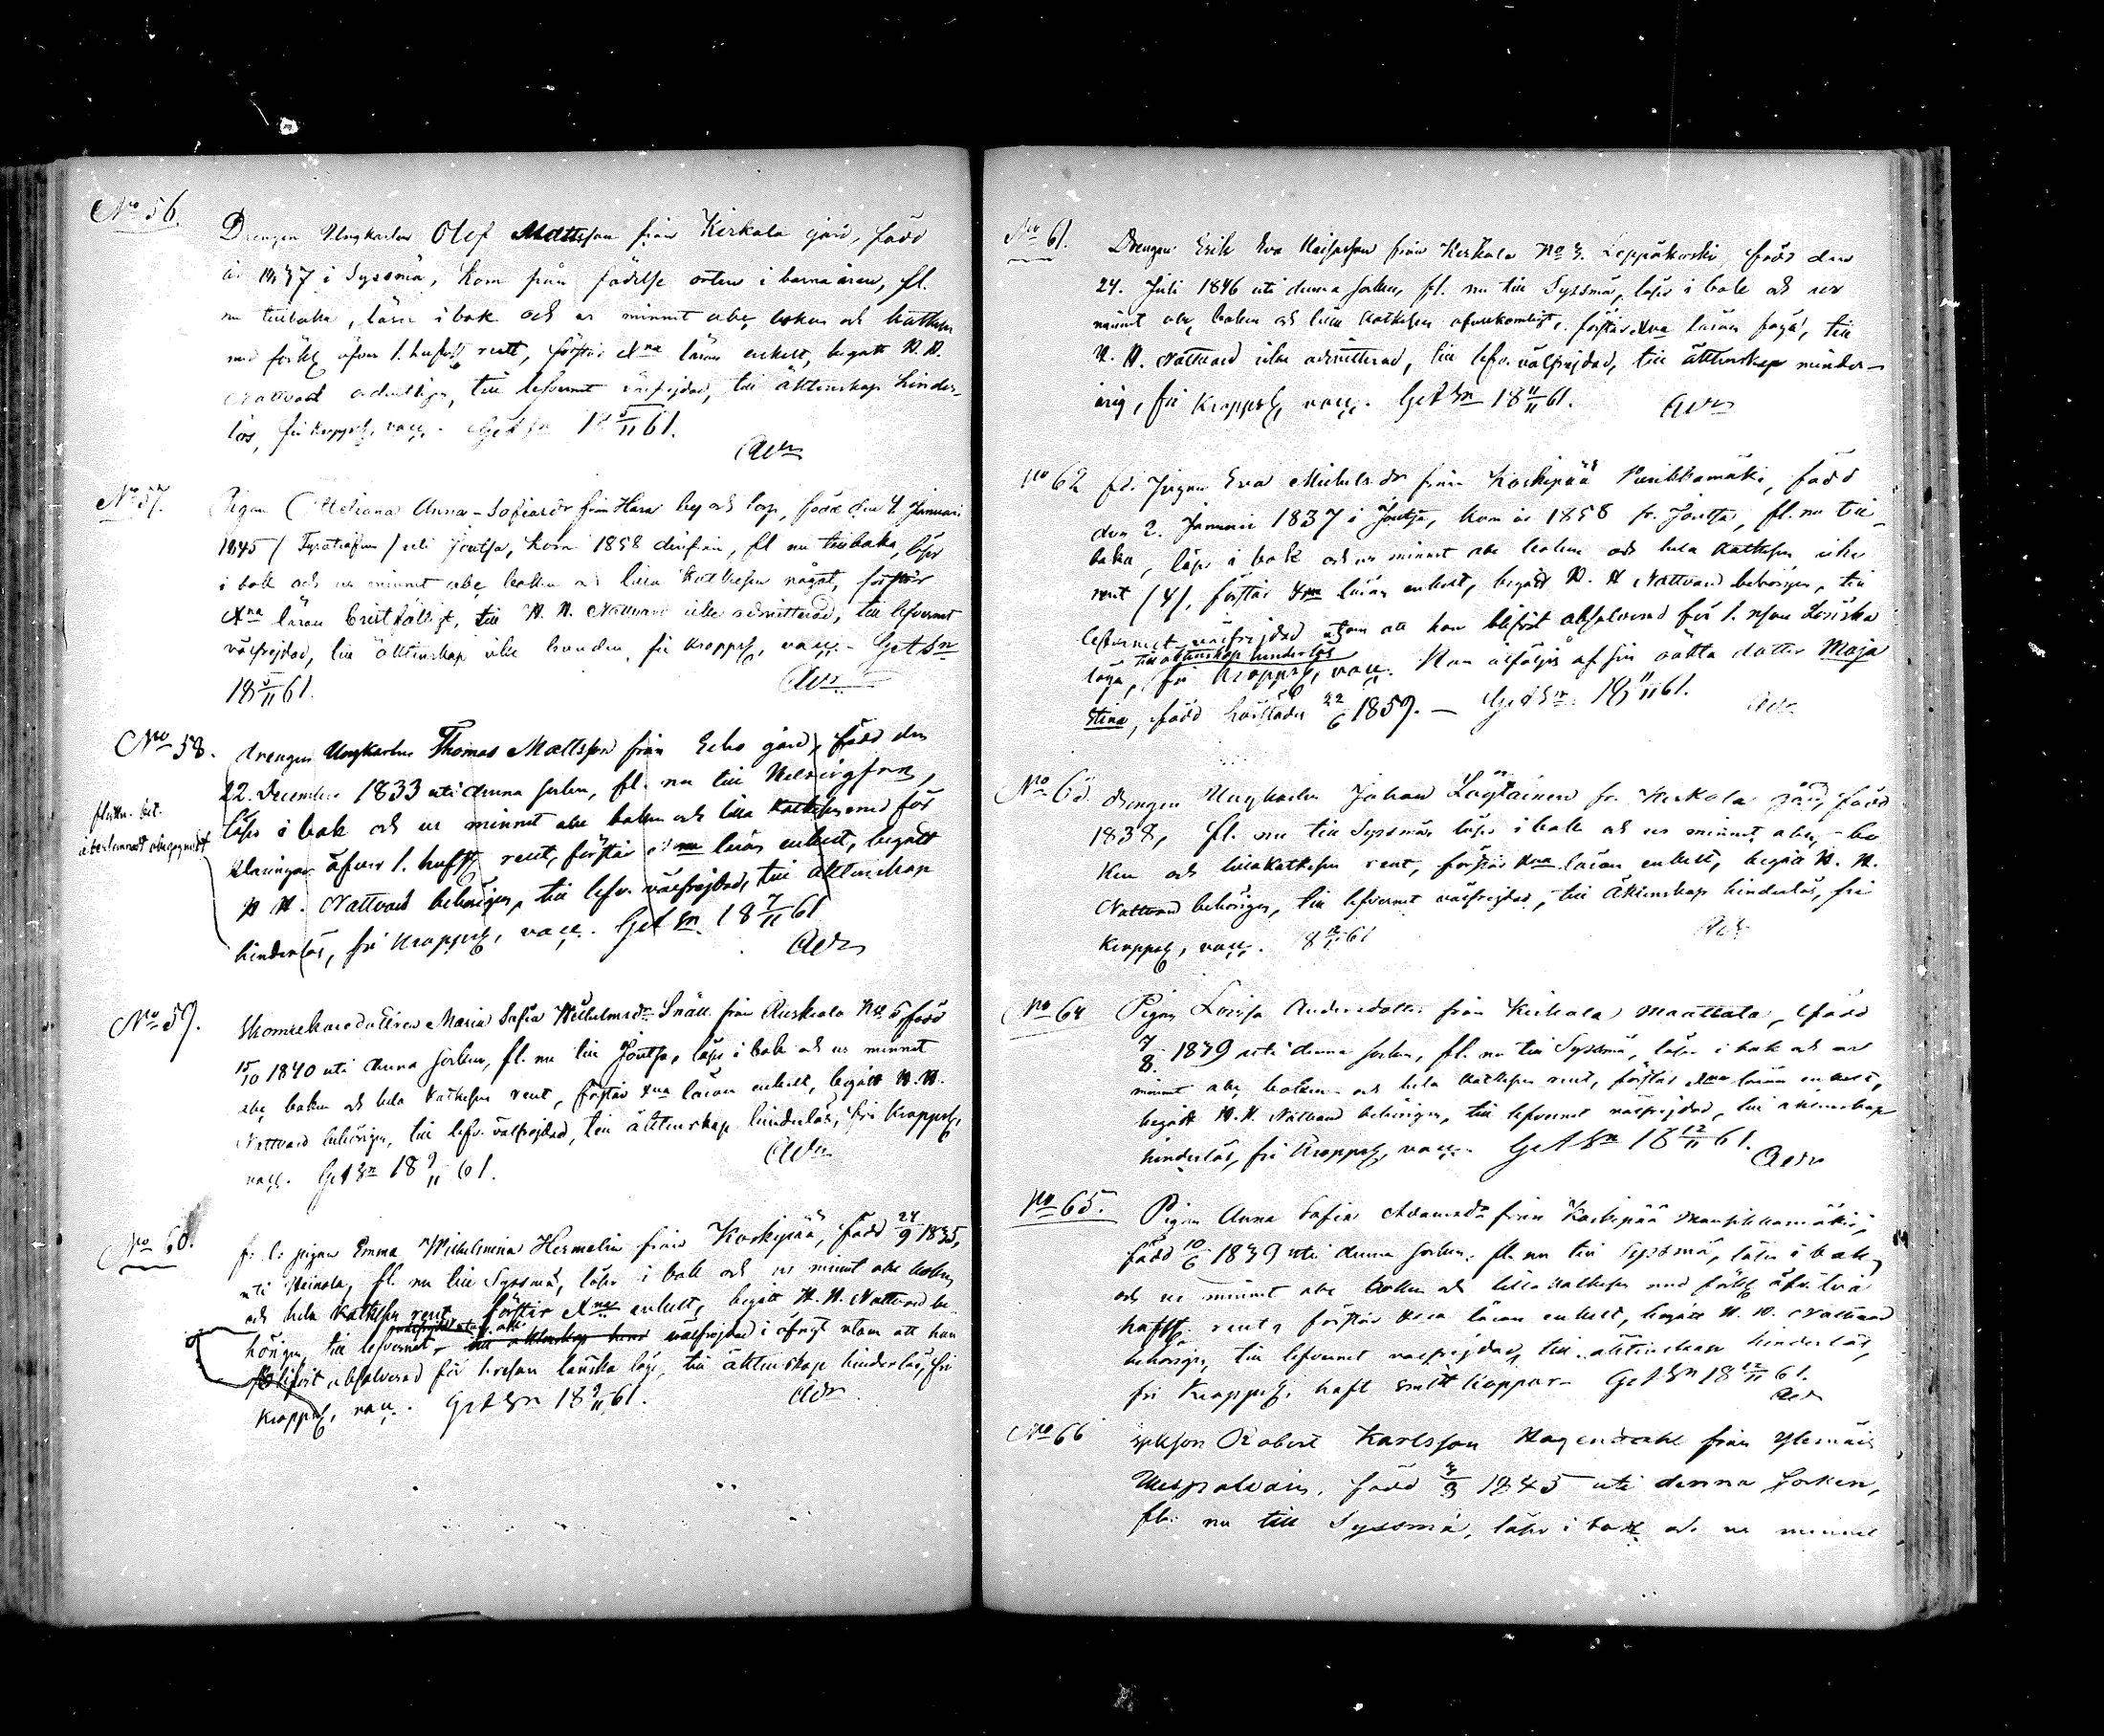 No 56.
Drengen Ungkarlen Olof Mattsson från Kirkola gård, född
år 1837 i Sysmä, kom från födelse orten i barna åren, fl.
nu tillbaka, läser i bok och ur minnet abc boken och kateken
med förkl. äfven 1. hufst. rent, förstår Xna läran enkelt, begått H. H.
Nattvard ordentligen, till lefvernet välfrejdad, till äktenskap hinder-
lös, fri kroppsf., vacc. GetSn 18 5/11 61.
Adn
No 57.
Pigan Adriana Anna-Sofiasdr från Hara by och torp, född den 4 Januari
1845 / / uti Joutsa, kom 1858 derifrån, fl nu tillbaka, läser
i bok och ur minnet abc boken och lilla kateksen något, förstår
Xna läran bristfälligt, till H. H. Nattvard icke admitterad, till lefvernet
välfrejdad, till äktenskap icke bunden, fri kroppsf., vacc. GetSn
18 5/11 61.
Adn
No 58.
drengen Ungkarlen Thomas Mattsson från Echo gård, född den
22. December 1833 uti denna socken, fl. nu till Helsingfors,
läser i bok och ur minnet abc boken och lilla kateksen med för
klaringar äfven 1. hufst. rent, förstår Xna läran enkelt, begått
H H. Nattvard behörigen, till lefv. välfrejdad, till äktenskap
hinderlös, fri kroppsf., vacc. GetSn. 18 7/11 61
Adn
flyttn. bet.
återlemnadt obegagnadt
No 59.
Skomakaredottren Maria Sofia Wilhelmsdr Snäll från Ruskola No 5, född
15/10 1840 uti denna socken, fl. nu till Joutsa, läser i bok och ur minnet
abc boken och hela kateksen rent, förstår Xna läran enkelt, begått H. H.
Nattvard behörigen, till lefv. välfrejdad, till äktenskap hinderlös, fri kroppsf.,
vacc. GetSn 18 9/11 61.
Adn
No 60.
f. d. pigan Emma Wilhelmina Hermelin från Koskipää, född 24/9 1835,
uti Heinola, fl. nu till Sysmä, läser i bok och ur minnet abc boken
och hela kateksen rent, förstår Xna enkelt, begått H. H. Nattvard be-
hörigen, till lefvernet till äktenskap välfrejdad i öfrigt utom att hon
blifvit absolverad för 1. resan lönska läge, till äktenskap hinderlös, fri
kroppsf., vacc. GetSn 18 9/11 61.
Adn
No 61.
Drengen Erik Eva Kaisasson från Kirkola No 3. Leppäkoski, född den
24. Juli 1846 uti denna socken, fl. nu till Sysmä, läser i bok och ur
minnet abc boken och lilla kateksen ofullkomligt, förstår Xna läran föga, till
H. H. Nattvard icke admitterad, till lefv. välfrejdad, till äktenskap minder-
årig, fri kroppsf., vacc. GetSn 18 11/11 61.
Adn
No 62
f.d. Pigan Eva Michelsdr från Koskipää Pusikkamäki, född
den 2. Januari 1837 i Joutsa, kom år 1858 fr. Joutsa, fl. nu till-
baka, läser i bok och ur minnet abc boken och hela kateksen icke
rent /4/, förstår Xna läran enkelt, begått H. H Nattvard behörigen, till
lefvernet välfrejdad utom att hon blifvit absolverad för 1. resan Lönska
till äktenskap hinderlös
läge, fri kroppsf., vacc. Hon åtföljes af sin oäkta dotter Maja
Stina, född härstädes 22/6 1859. — GetSn. 18 11/11 61.
Adn
No 63.
drengen Ungkarlen Johan fr. Kirkola gård, född
1838, fl. nu till Sysmä läser i bok och ur minnet abc-bo
ken och lilla kateksen rent, förstår Xna läran enkelt, begått H. H.
Nattvard behörigen, till lefvernet välfrejdad, till äktenskap hinderlös, fri
kroppsf., vacc. 18 12/11 61
Adn
No 64
Pigan Lovisa Andersdotter från Kirkola Maattala, född
7/8. 1839 uti denna socken, fl. nu till Sysmä, läser i bok och ur
minnet abc boken och hela kateksen rent, förstår Xna läran enkelt,
begått H. H. Nattvard behörigen, till lefvernet välfrejdad, till äktenskap
hinderlös, fri kroppsf., vacc. GetSn 18 12/11 61.
Adn
No 65.
Pigan Anna Sofia Adamsdr från Koskipää Mansikkamäki,
född 10/6 1839 uti denna socken, fl. nu till Sysmä, läser i bok
och ur minnet abc boken och lilla kateksen med förkl. äfv. två
hufst. rent, förstår Xna läran enkelt, begått H. H. Nattvard
behörigen, till lefvernet välfrejdad, till äktenskap hinderlös,
fri kroppsf. haft smitt koppor. GetSn 18 12/11 61.
Adn
No 66
Robert Karlsson Hagendahl från Ylemäis
född 3/3 1845 uti denna socken,
fl. nu till Sysmä, läser i bok och ur minnet